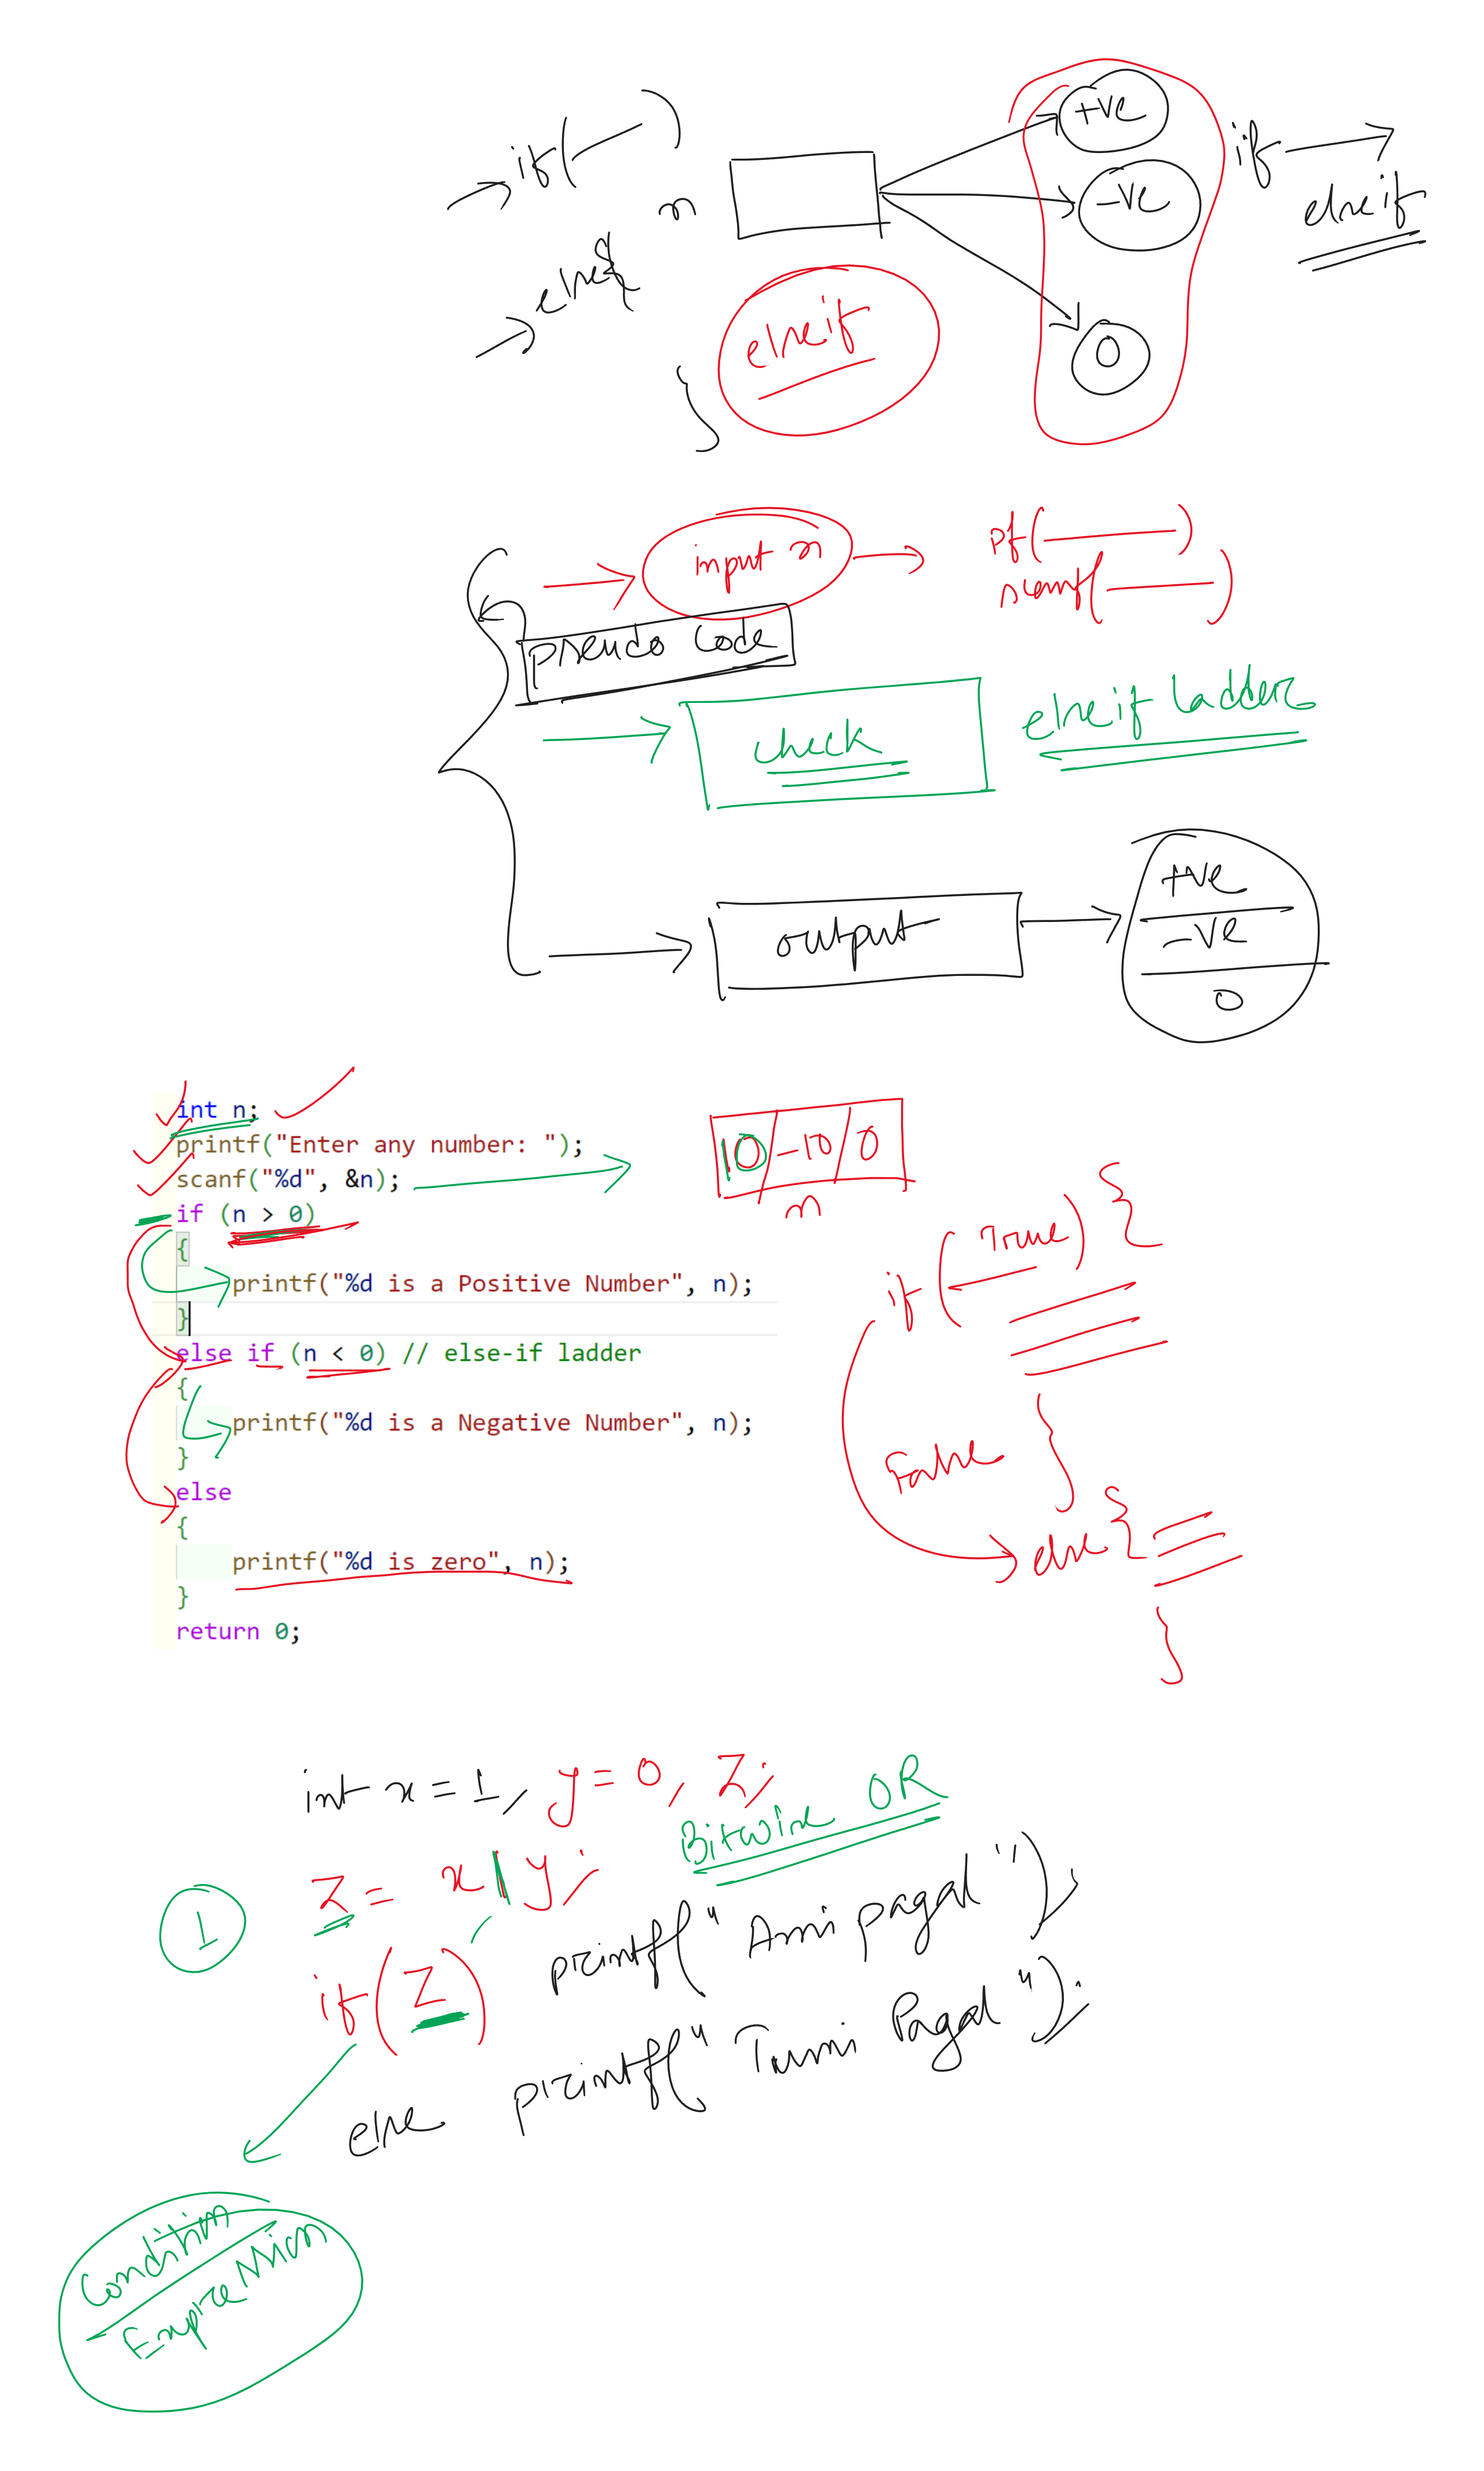 if( )
+ve
if
-ve
else if
n
else{
else if
0
}
input n
pf( )
scanf( )
pseudo code
check
else if ladder
output
+ve
-ve
0
int n;
printf("Enter any number: ");
scanf("%d", &n);
10/-10/0
n
if (n > 0)
{
printf("%d is a Positive Number", n);
}
else if (n < 0) // else-if ladder
{
printf("%d is a Negative Number", n);
}
else
{
printf("%d is zero", n);
}
return 0;
if(True){
}
False
else{
}
int x=1, y=0, z;
Bitwise OR
1
z= x|y;
if(z) printf("Ami pagal");
else printf("Tumi Pagal");
Condition
Expression